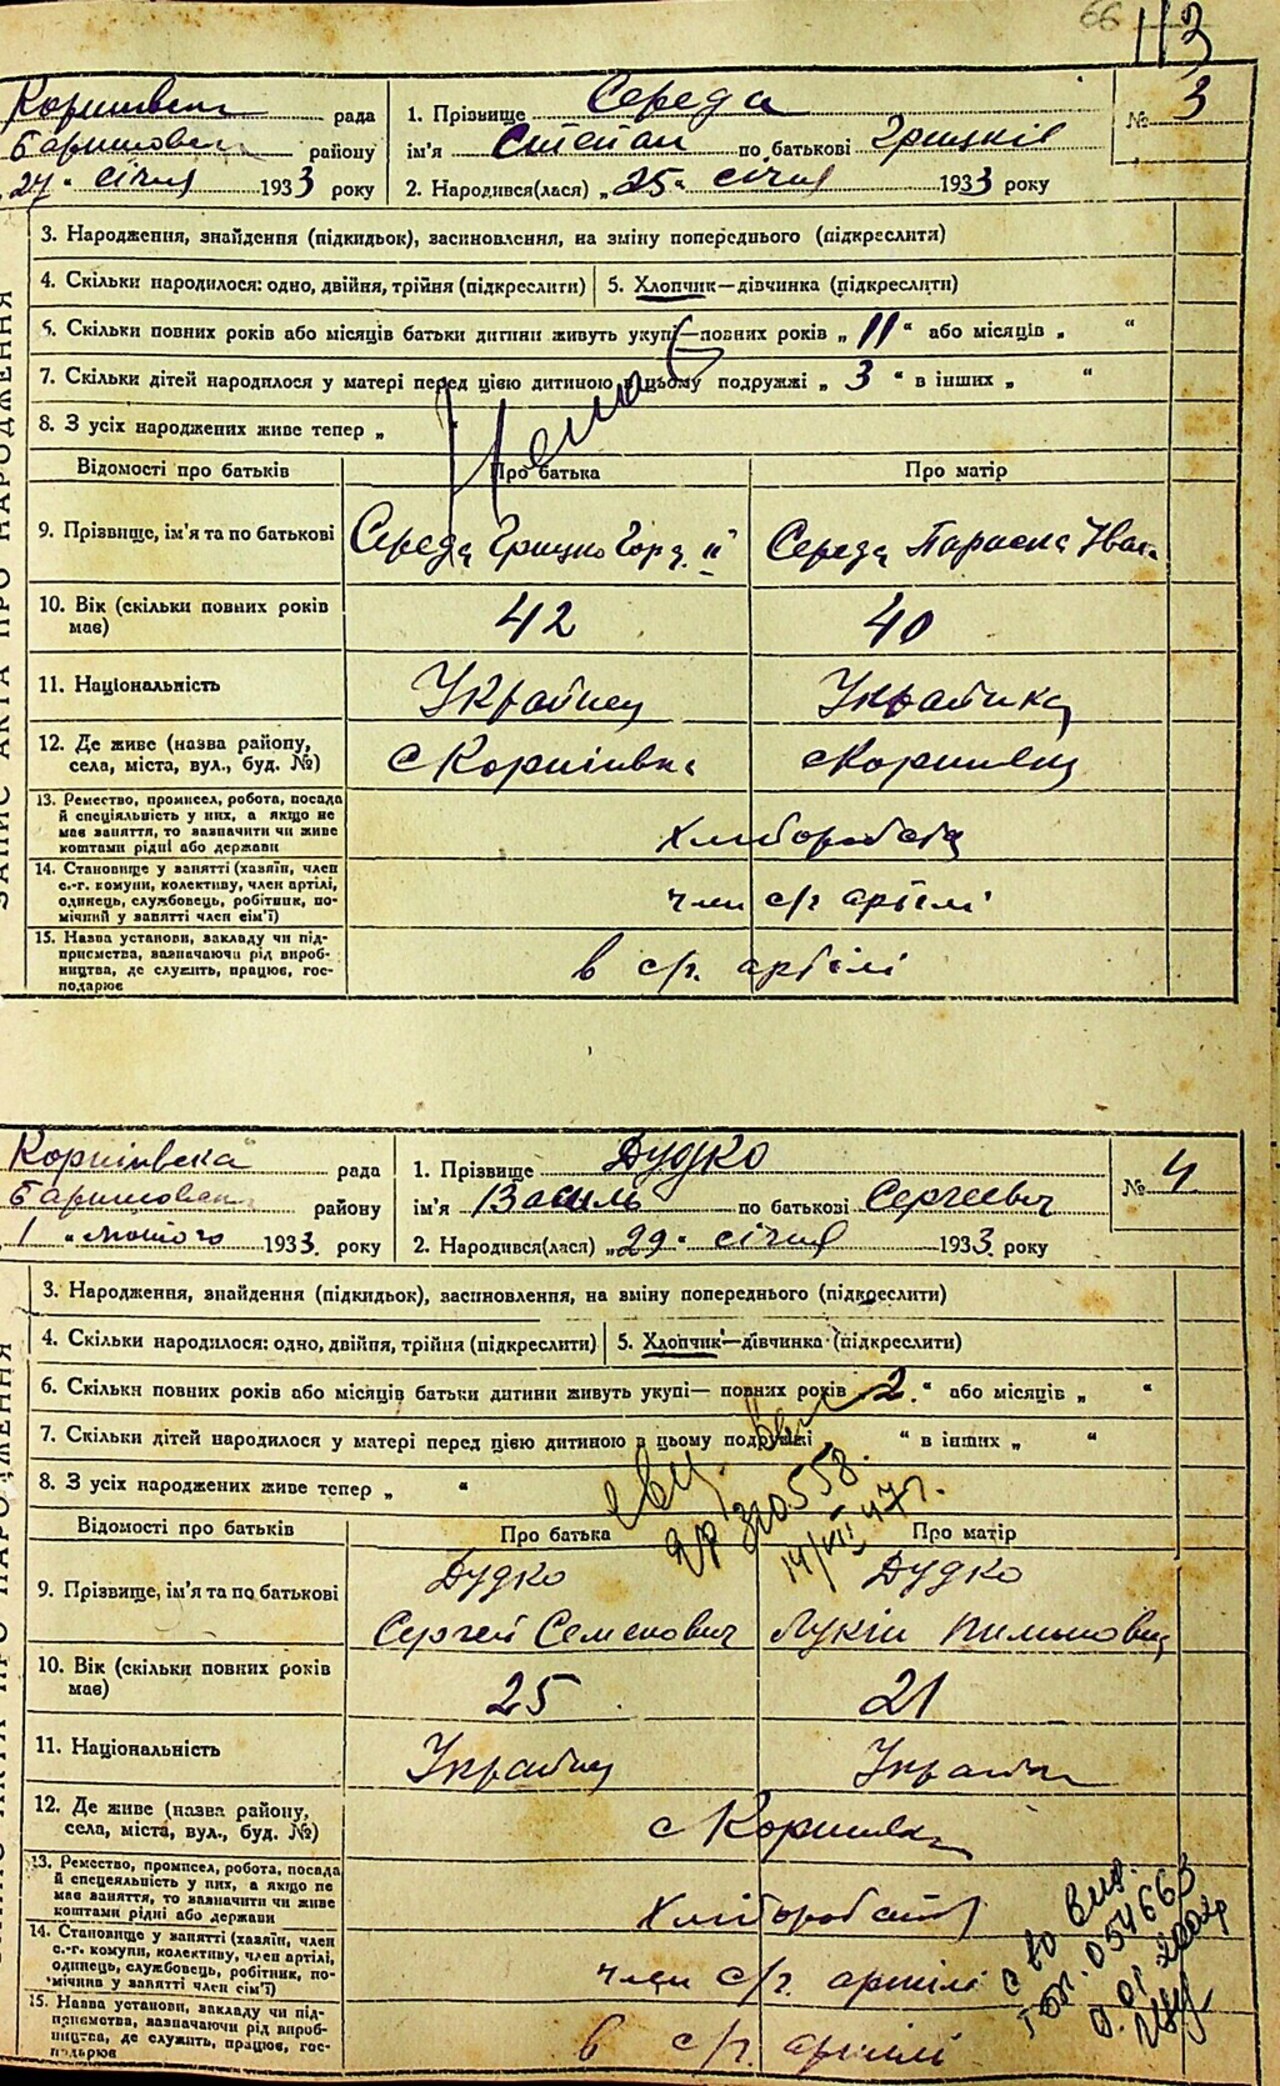 66 113
рада
району
27 " січня 1933 року
1. Прізвище Середа
ім'я Степан по батькові Грицків
2. Народився(лася) „ 25 " січня 1933 року
№ 3
3. Народження, знайдення (підкидьок), засиновлення, на зміну попереднього (підкреслити)
4. Скільки народилося: одно, двійня, трійня (підкреслити) 5. Хлопчик—дівчинка (підкреслити)
6. Скільки повних років або місяців батьки дитини живуть укупі—повних років „ 11 " або місяців „ "
7. Скільки дітей народилося у матері перед цією дитиною в цьому подружжі „ 3 " в інших „ "
8. З усіх народжених живе тепер „
Нема
Відомості про батьків Про батька Про матір
9. Прізвище, ім'я та по батькові Середа Грицко Середа Параска
10. Вік (скільки повних років
має) 42 40
11. Національність Українец Українка
12. Де живе (назва району,
села, міста, вул., буд. №) с Корніївка
13. Ремество, промисел, робота, посада
й спеціяльність у них, а якщо не
має заняття, то зазначити чи живе
коштами рідні або держави
14. Становище у занятті (хазяїн, член
с.-г. комуни, колективу, член артілі,
одинець, службовець, робітник, по-
мічний у занятті член сім'ї) член с/г артілі
15. Назва установи, закладу чи під-
приємства, зазначаючи рід вироб-
ництва, де служить, працює, гос-
подарює в с/г. артілі
Корніївська рада
району
1 " лютого 1933. року
1. Прізвище Дудко
ім'я Василь по батькові Сергеевич
2. Народився(лася) „ 29 " січня 1933. року
№ 4
3. Народження, знайдення (підкидьок), засиновлення, на зміну попереднього (підкреслити)
4. Скільки народилося: одно, двійня, трійня (підкреслити) 5. Хлопчик—дівчинка (підкреслити)
6. Скільки повних років або місяців батьки дитини живуть укупі— повних років „ 2. " або місяців „ "
7. Скільки дітей народилося у матері перед цією дитиною в цьому подружжі " в інших „ "
8. З усіх народжених живе тепер „ "
558.
14/VII 47г.
Відомості про батьків Про батька Про матір
9. Прізвище, ім'я та по батькові Дудко Дудко
Сергей Семенович
10. Вік (скільки повних років
має) 25 21
11. Національність
12. Де живе (назва району,
села, міста, вул., буд. №)
13. Ремество, промисел, робота, посада
й спецеяльність у них, а якщо не
має заняття, то зазначити чи живе
коштами рідні або держави
14. Становище у занятті (хазяїн, член
с.-г. комуни, колективу, член артілі,
одинець, службовець, робітник, по-
мічний у занятті член сім'ї) член с/г. артілі
15. Назва установи, закладу чи під-
приємства, зазначаючи рід вироб-
ництва, де служить, працює, гос-
подарює в с/г. артілі
054663